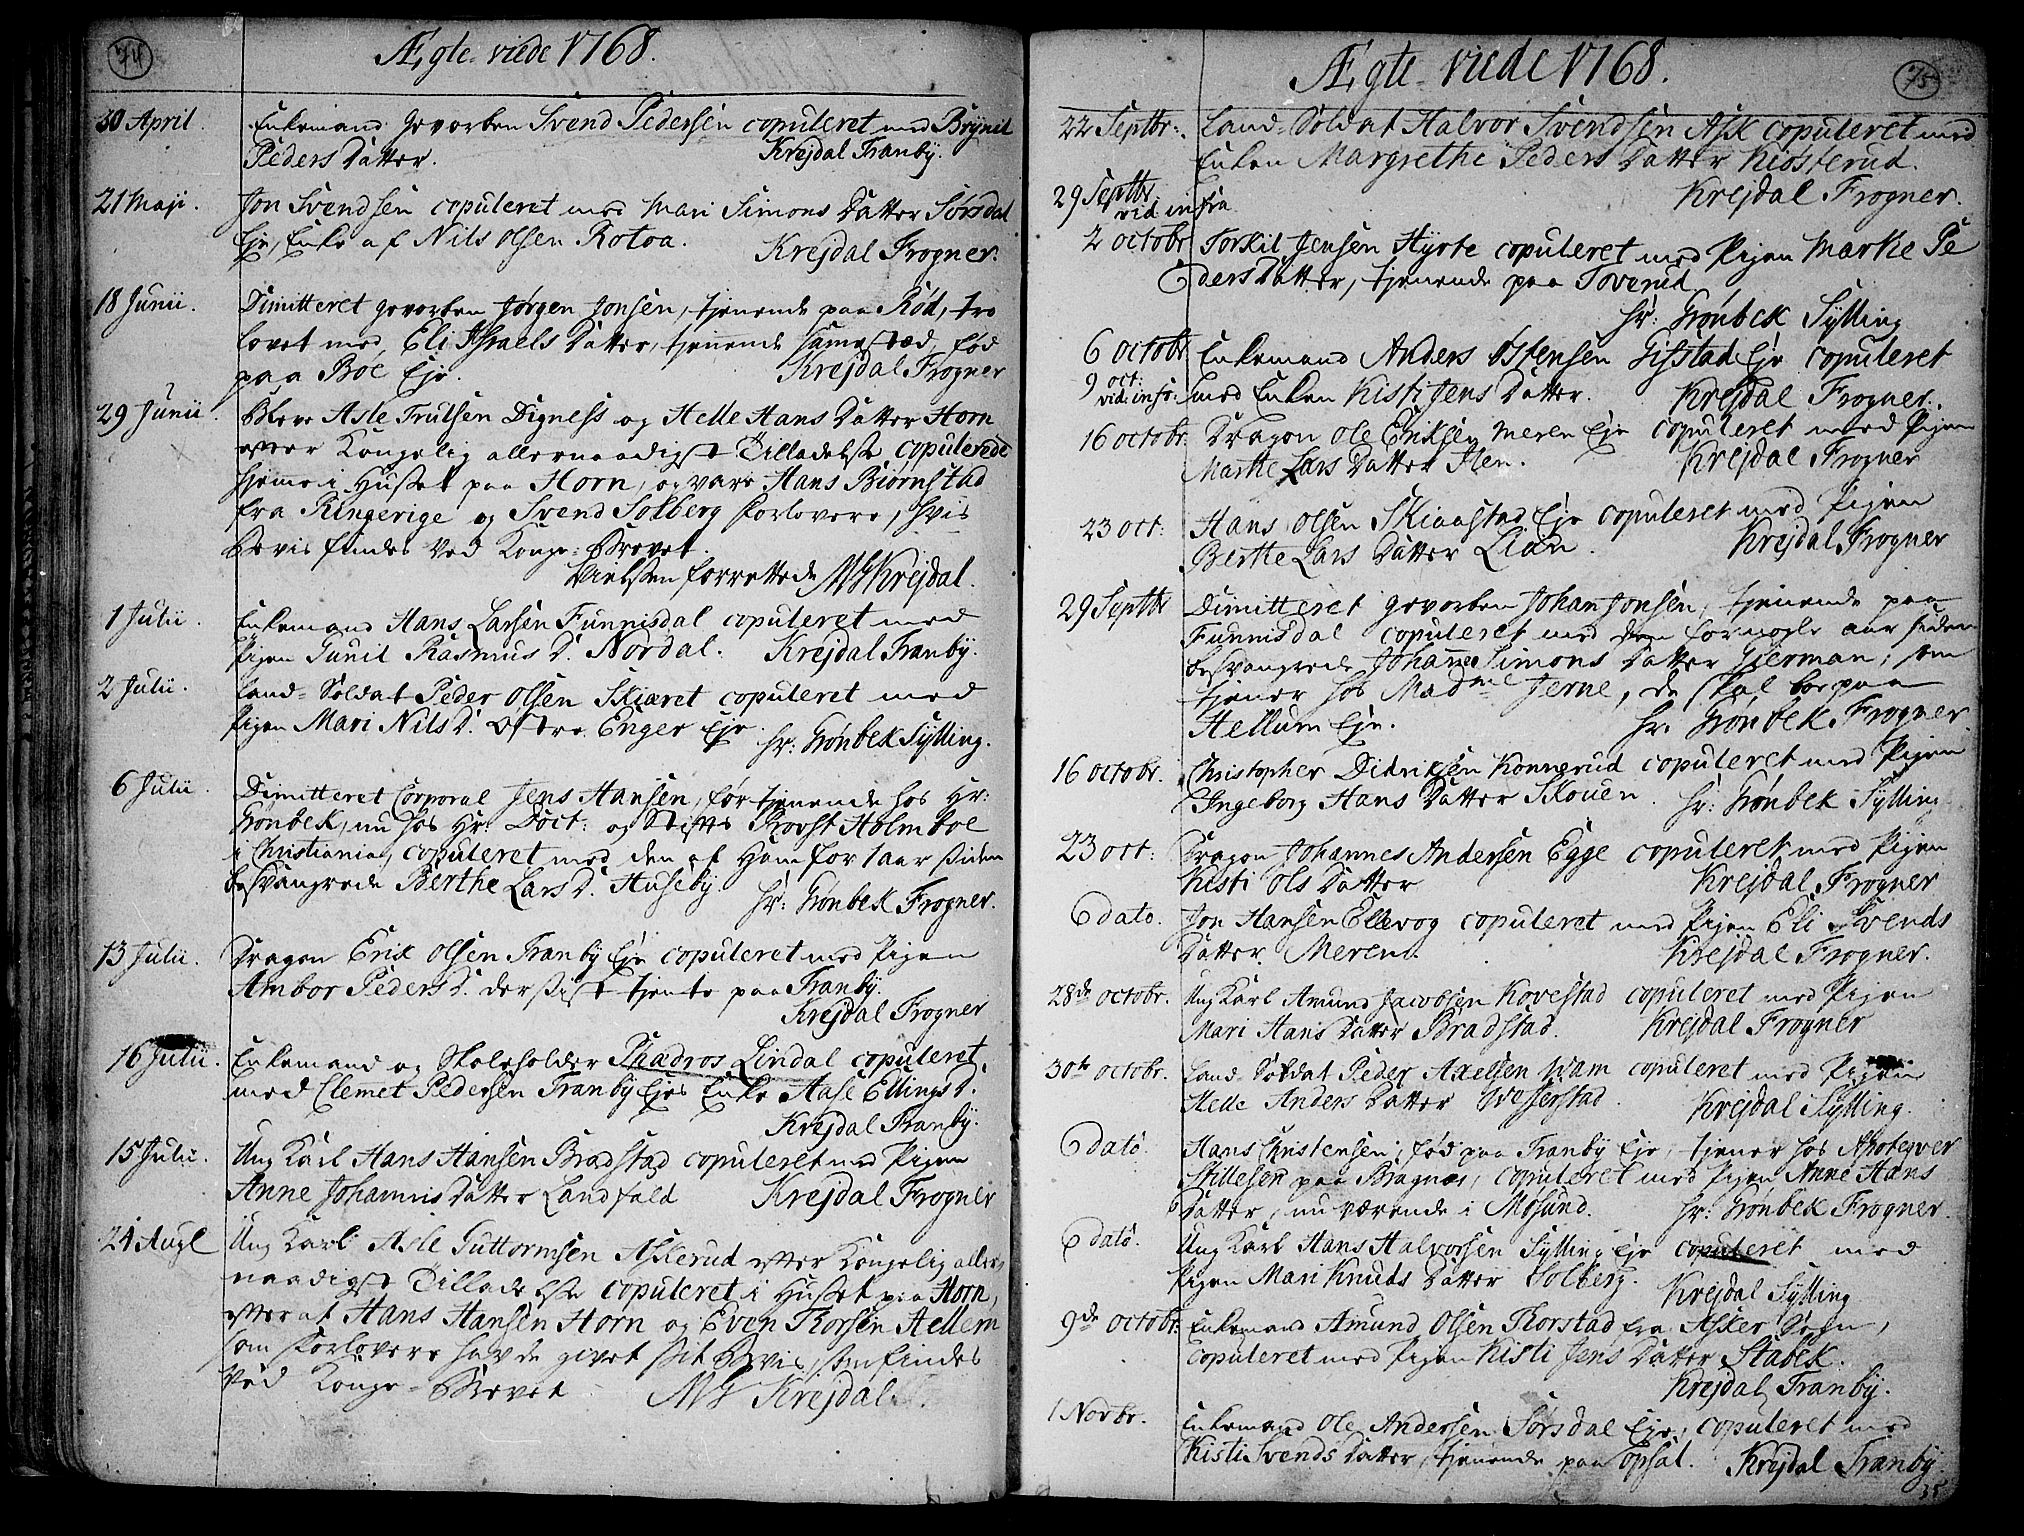 74
Ægte viede 1768.
30 April. Enkemand gevorben Svend Pedersen copuleret med Brynil
Peders Datter. Krejdal Tranby.
21 Maji. Jon Svendsen copuleret med Mari Simons Datter Sørsdal
Eje, Enke af Nils Olsen Rotoa. Krejdal Frogner.
18 Junii. Dimitteret gevorben Jørgen Jonsen, tjenende paa Rød, tro
lovet med Eli Israels Datter, tjenende sammestæd, fød
paa Boe Eje. Krejdal Frogner
29 Junii. Bleve Asle Trulsen Digness og Helle Hans Datter Horn
efter Kongelig allernaadigst Tilladelse copulerede
hjeme i Huset paa Horn, og vare Hans Biørnstad
fra Ringerige og Svend Solberg Forlovere, hvis
Bevis findes ved Konge-Brevet.
forrettede Krejdal.
1 Julii. Enkemand Hans Larsen Funnisdal copuleret med
Pigen Gunil Rasmus D. Nordal. Krejdal Tranby.
2 Julii. Land-Soldat Peder Olsen Skiæret copuleret med
Pigen Mari Nils D. Østre Enger Eje. Hr: Grønbek Sylling.
6 Julii. Dimitteret Corporal Jens Hansen, før tjenende hos Hr:
Grønbek, nu hos Hr: Doct: og Stifts Provst Holmboe
i Christiania, copuleret med den af Ham for 1 aar siden
besvangrede Berthe Lars D. Huseby. Hr: Grønbek Frogner.
13 Julii. Dragon Erik Olsen Tranby Eje copuleret med Pigen
Ambor Peders D. der sidst tjente paa Tranby.
Krejdal Frogner
16 Julii. Enkemand og Skoleholder Thadros Lindal copuleret
med Clemet Pedersen Tranby Ejes Enke Aase Ellings D.
Krejdal Tranby.
15 Julii. Ung Karl Hans Hansen Bradstad copuleret med Pigen
Anne Johannis Datter Landfald Krejdal Frogner
24 Augl Ung Karl Asle Guttormsen Aslerud efter Kongelig aller
naadigst Tilladelse copuleret i Huset paa Horn,
efter at Hans Hansen Horn og Even Thorsen Hellem
som Forlovere havde givet sit Bevis, som findes
ved Konge-Brevet Krejdal.
75
Ægte viede 1768.
22 Septbr. Land-Soldat Halvor Svendsen Ask copuleret med
Enken Margrethe Peders Datter Kiøsterud.
Krejdal Frogner.
29 Septbr
vid infra
2 octobr Torkil Jensen Hyrte copuleret med Pigen Marthe Pe
ders Datter, tjenende paa Toverud
Hr: Grønbek Sylling
6 octobr Enkemand Anders Østensen Gifstad Eje copuleret
9 oct: vid: infr. med Enken Kisti Jens Datter. Krejdal Frogner.
16 octobr. Dragon Ole Eriksen Meren Eje copuleret med Pigen
Marthe Lars Datter Hen. Krejdal Frogner
23 oct: Hans Olsen Skiaastad Eje copuleret med Pigen
Berthe Lars Datter Lian. Krejdal Frogner
29 Septbr Dimitteret gevorben Johan Jonsen, tjenende paa
Funnisdal copuleret med den for nogle aar siden
besvangrede Johanne Simons Datter Gierman, som
tjener hos Mad:me Jerne, de skal boe paa
Hellum Eje. Hr: Grønbek Frogner
16 octobr. Christopher Didriksen Konnerud copuleret med Pigen
Ingeborg Hans Datter Skouen. Hr: Grønbek Sylling
23 oct: Dragon Johannes Andersen Egge copuleret med Pigen
Kisti Ols Datter Krejdal Frogner
dato. Jon Hansen Ellevog copuleret med Pigen Eli Svends
Datter Meren. Krejdal Frogner.
28de octobr. Ung Karl Amund Jacobsen Kovestad copuleret med Pigen
Mari Hans Datter Bradstad. Krejdal Frogner
30te octobr. Land-Soldat Peder Axelsen Wam copuleret med Pigen
Helle Anders Datter Weserstad. Krejdal Sylling.
dato Hans Christensen, fød paa Tranby Eje, tjener hos Apotequer
Stillesen paa Bragnæs, copuleret med Pigen Anne Hans
Datter, nu værende i Mosund. Hr: Grønbek Frogner
dato. Ung Karl Hans Halvorsen Sylling Eje copuleret med
Pigen Mari Knuds Datter Solberg. Krejdal Sylling
9de octobr. Enkemand Amund Olsen Thorstad fra Asker Sogn,
copuleret med Pigen Kisti Jens Datter Stabek.
Krejdal Tranby.
1 Novbr. Enkemand Ole Andersen Sørsdal Eje, copuleret med
Kisti Svends Datter, tjenende paa Opsal. Krejdal Tranby.
35